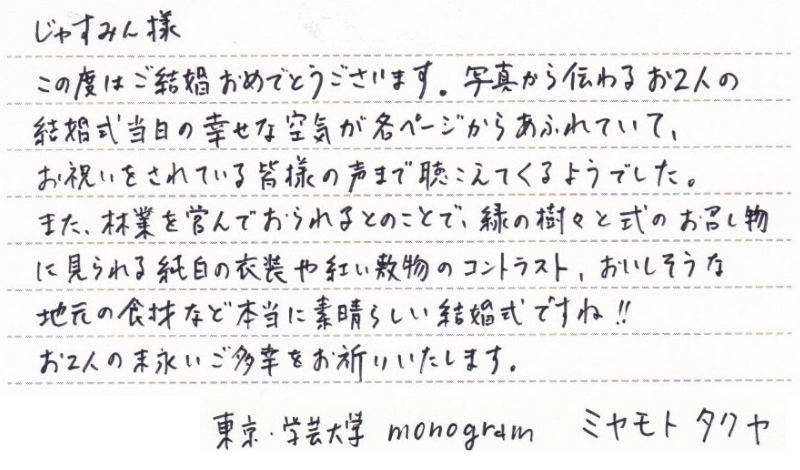 じゃすみん様
この度はご結婚おめでとうございます。写真から伝わるお2人の
結婚式当日の幸せな空気が各ページからあふれていて、
お祝いをされている皆様の声まで聴こえてくるようでした。
また、林業を営んでおられるとのことで、緑の樹々と式のお召し物
に見られる純白の衣装や紅い敷物のコントラスト、おいしそうな
地元の食材など本当に素晴らしい結婚式ですね!!
お2人の末永いご多幸をお祈りいたします。
東京・学芸大学 monogram ミヤモト タクヤ